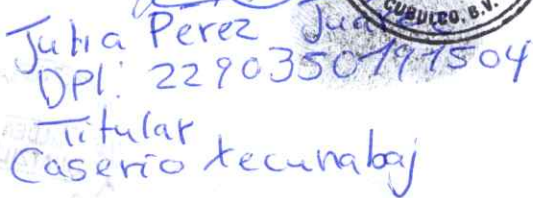 CUBULCO, B.V.
Julia Perez Juarez
DPI: 2290350191504
Titular
Caserio xecunabaj